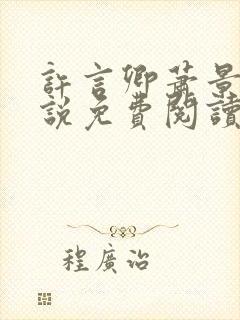 許言卿蕭景
說免費閱讀
程廣治